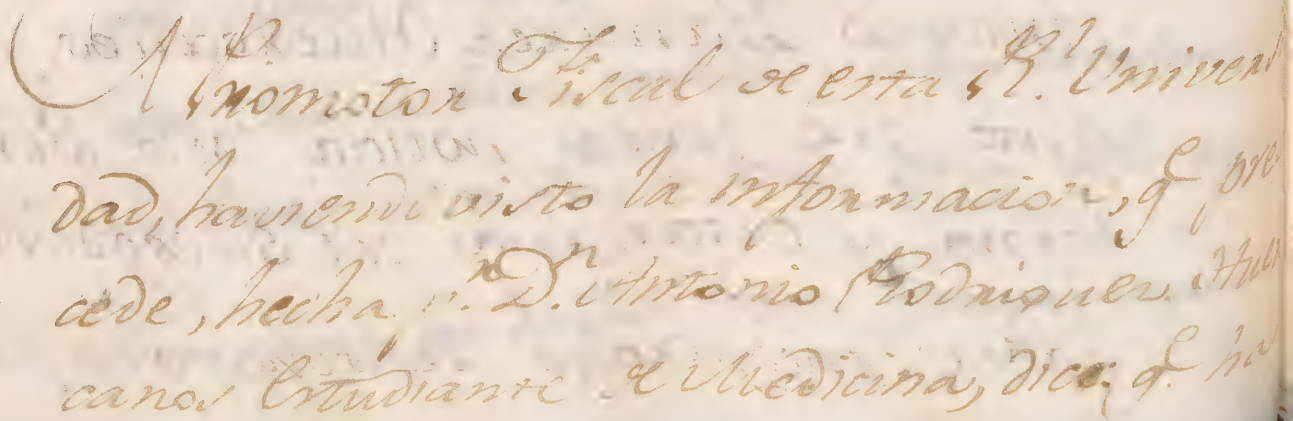 El Promotor Fiscal de esta Rl. Universi
dad, haviendo visto la informacion, qe. pre
cede, hecha pr. Dn. Antonio Rodriguez
canos Estudiante de Medicina, dice, qe. ha